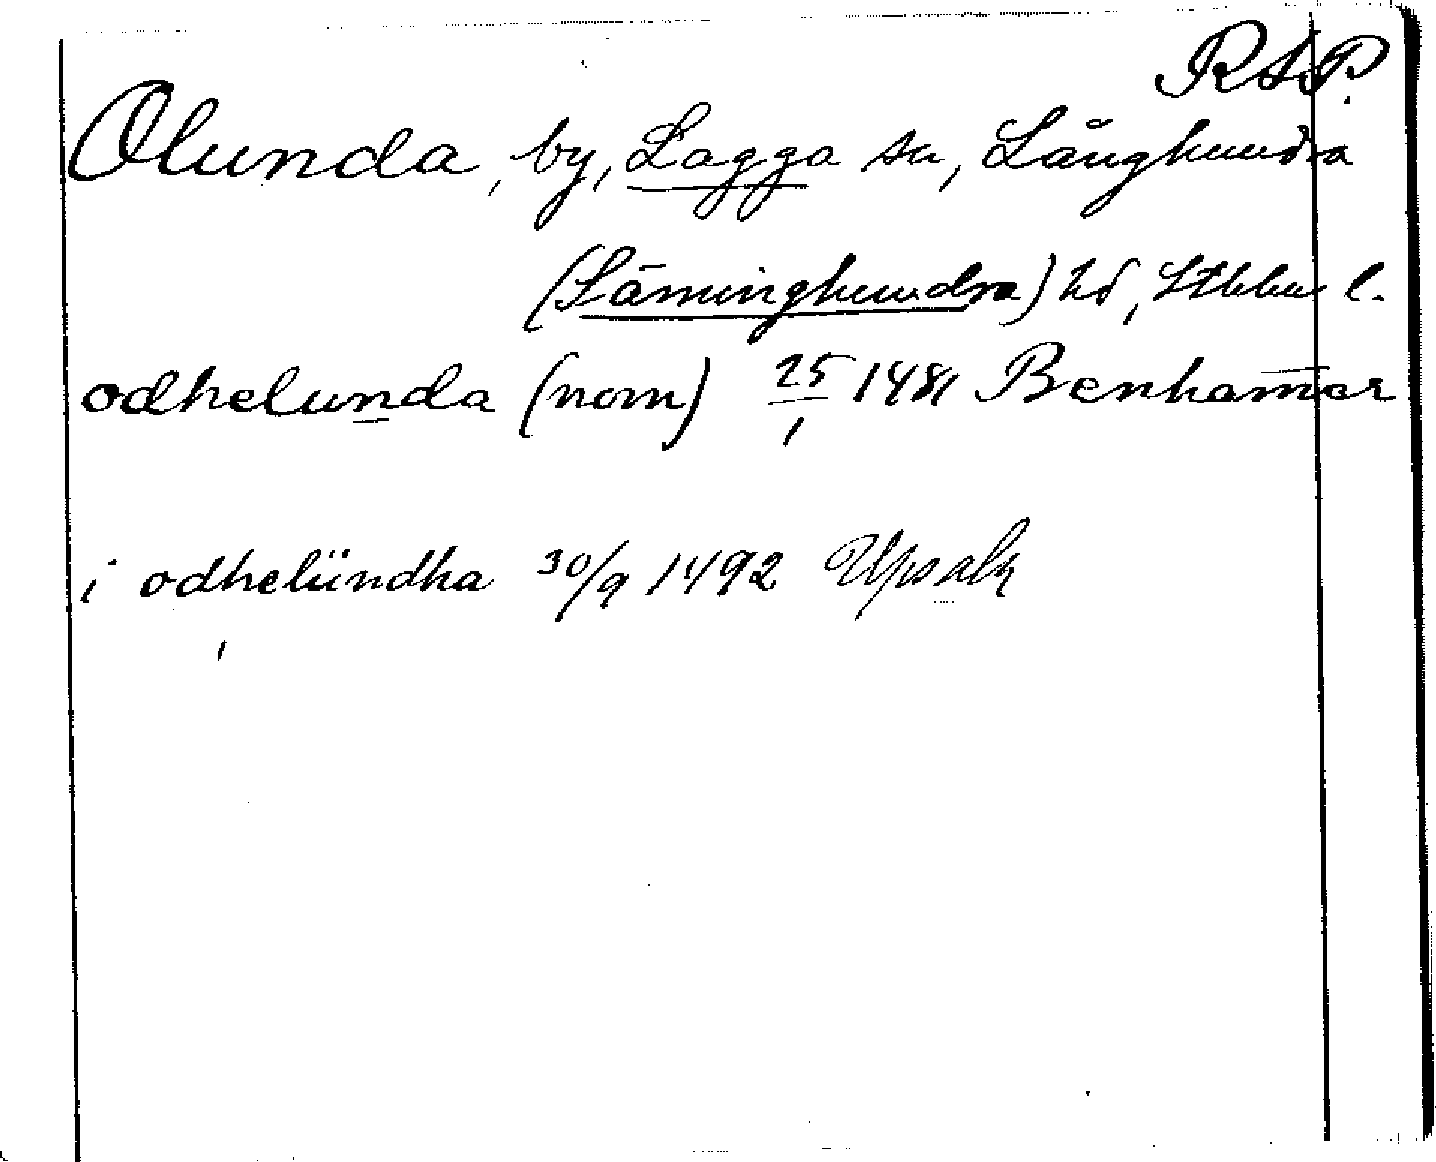 RAP.
Olunda, by, Lagga sn, Långhundra
(Läminghundra) hd, Sthlms l.
odhelunda (nom) 25/1 1481 Benhamar
i odhelündha 30/9 1492 Upsala